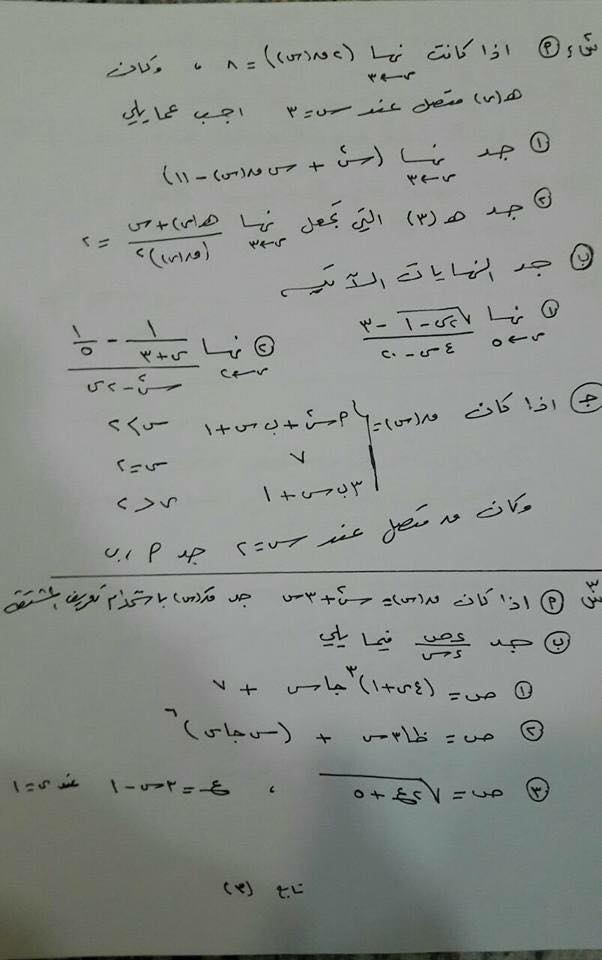 س٢ (٢) اذا كانت نهــا (٢ق(س)) = ٨ ، وكان
س←٣
هـ(س) متصل عند س=٣ اجب عما يلي
① جد نهــا (س٢ + س ق(س) - ١١)
س←٣
② جد هـ(٣) التي تجعل نهــا هـ(س)+س / (ق(س))٢ = ٢
س←٣
ب جد النهايات الآتية
① نهــا √٢س-١ - ٣ / ٤س-٢٠
س←٥
② نهــا ١/س+٣ - ١/٥ / س٢-٢س
س←٢
ج اذا كان ق(س)= ٢س٢+ب س+١ س>٢
٧ س=٢
٣ب س+١ س<٢
وكان ق متصل عند س=٢ جد ٢، ب
س٣ (٢) اذا كان ق(س)= س٢+٣س جد قَ(س) باستخدام تعريف المشتقة
ب جد ءص/ءس فيما يلي
① ص= (٤س+١)٣ جاس + ٧
② ص= ظا٣س + (س جاس)٦
③ ص= √٢ع+٥ ، ع=٣س-١ عند س=١
تابع (٣)